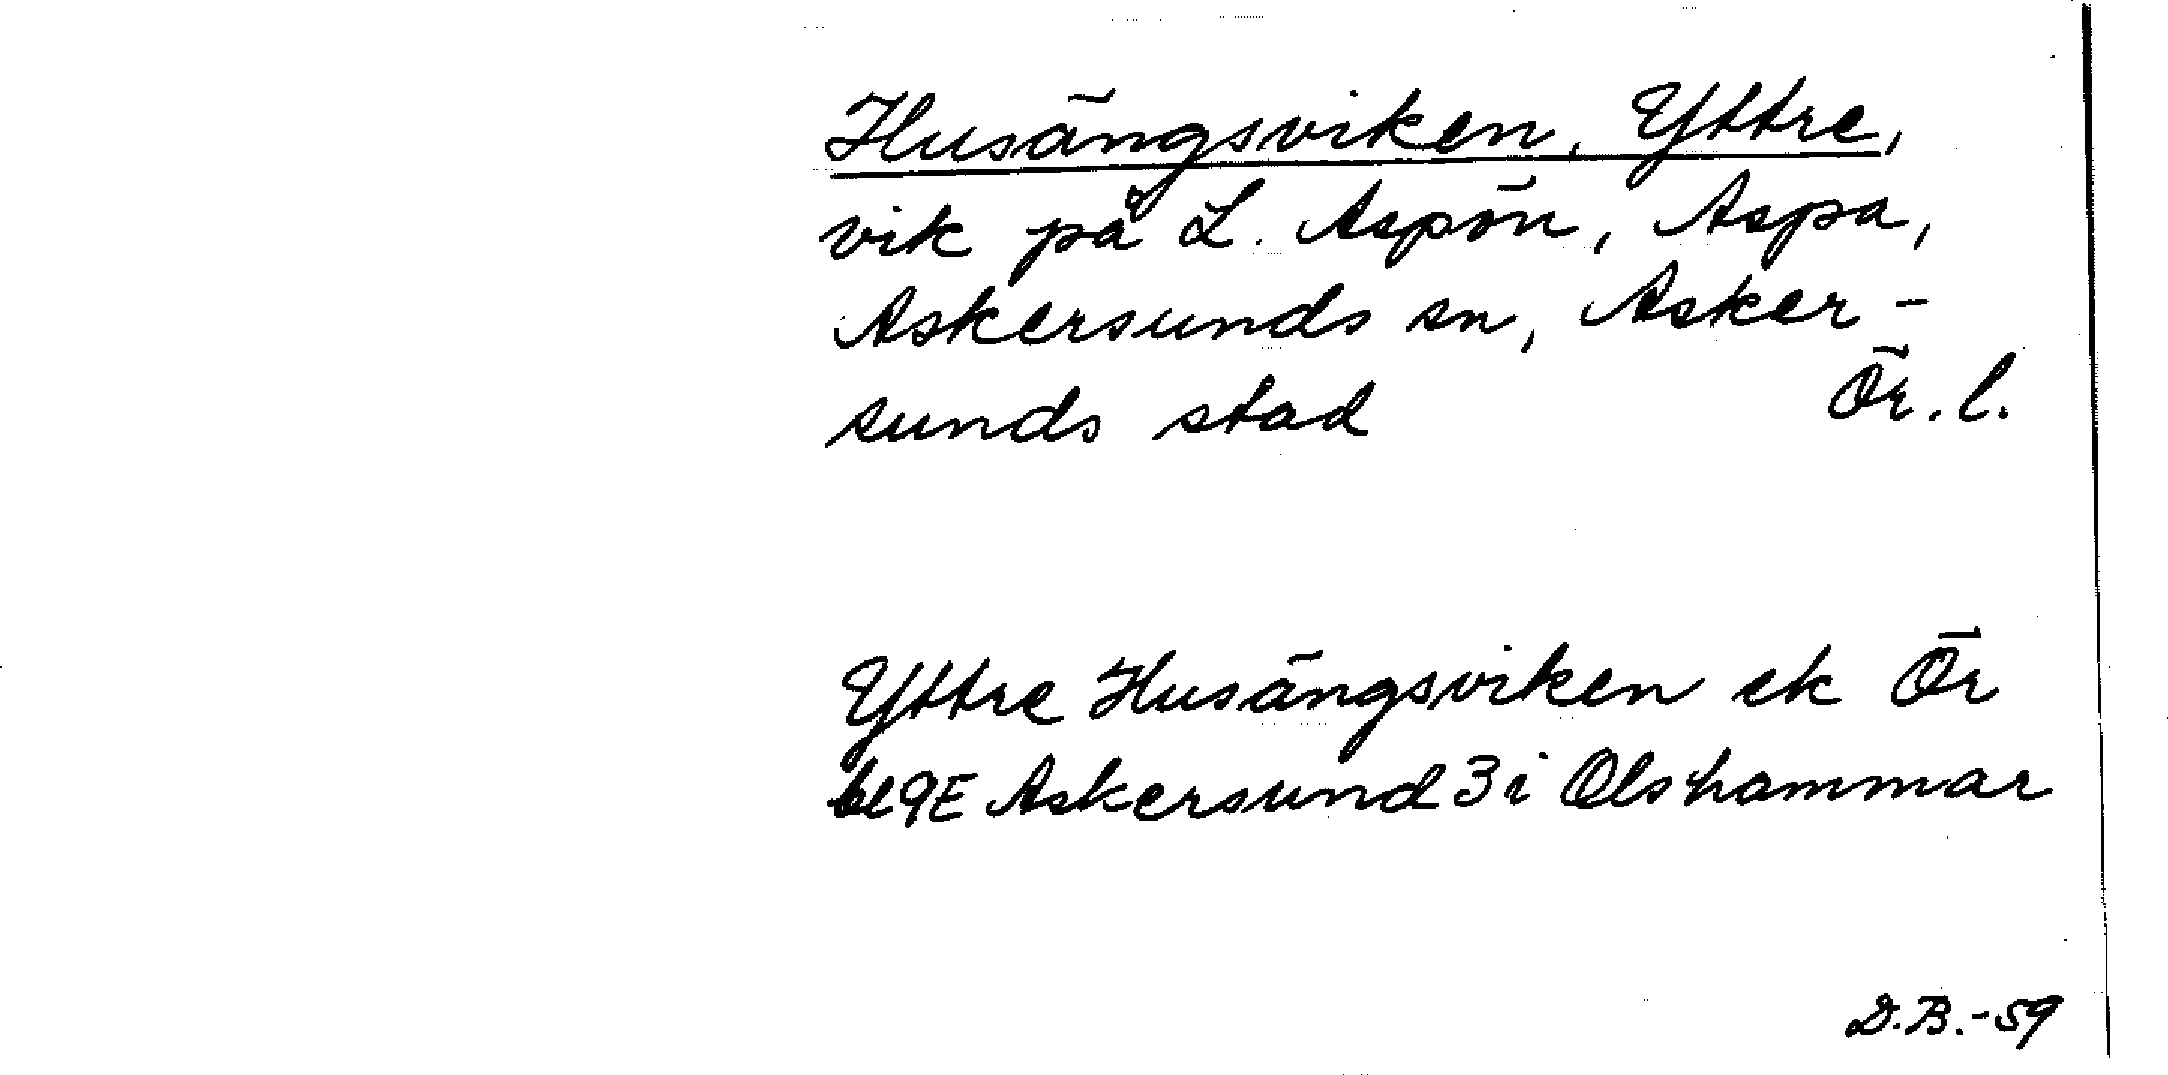 Husängsviken, Yttre,
vik på L. Aspön, Aspa,
Askersunds sn, Asker-
sunds stad Ör. l.
Yttre Husängsviken ek Ör
bl 9E Askersund 3i Olshammar
D.B.-59